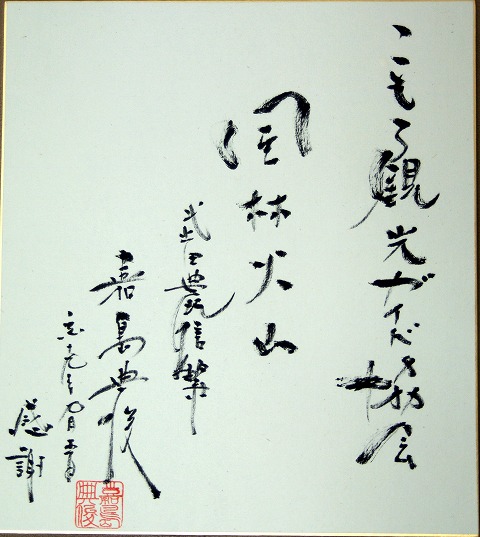 こもろ観光ガイド協会
風林火山
武田典厩信繁
嘉島典俊
感謝
嘉島
典俊